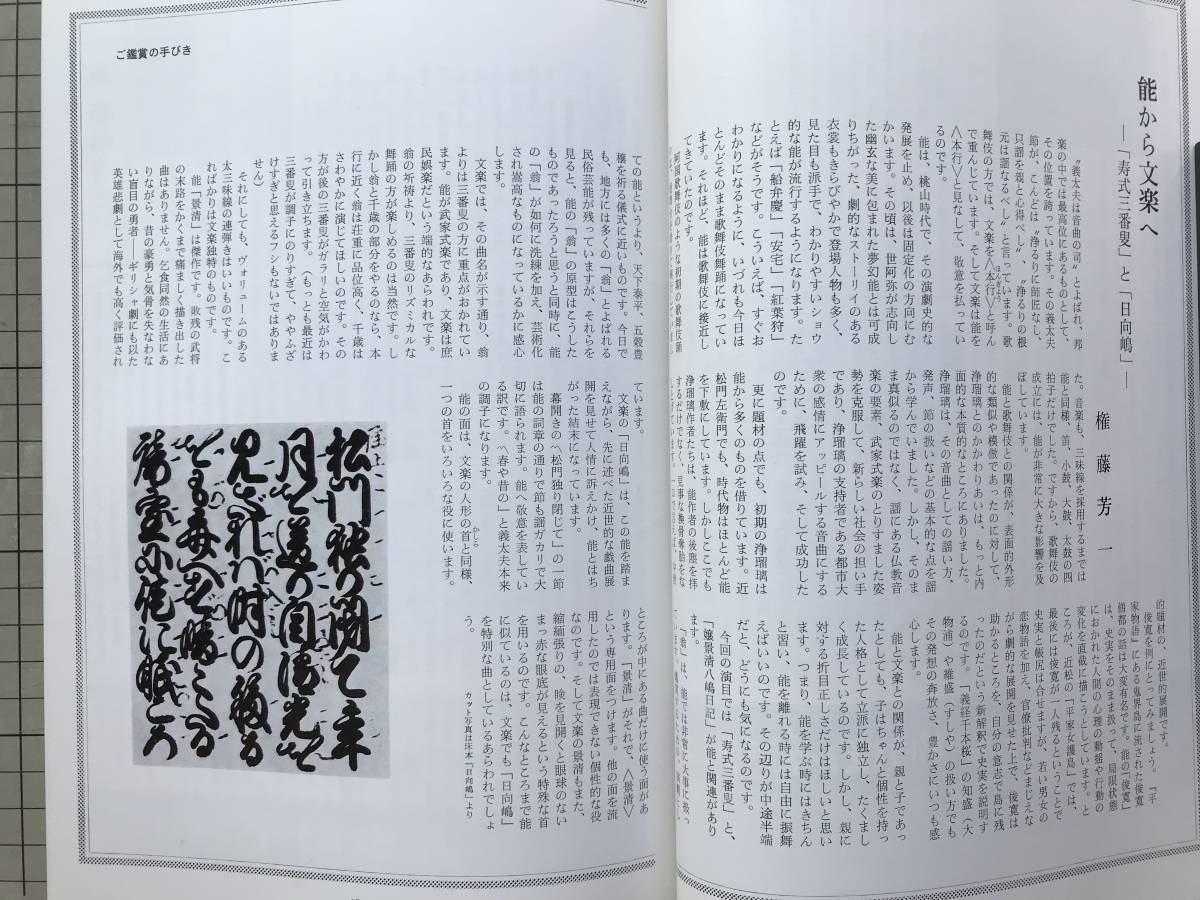 ご鑑賞の手びき
能から文楽へ
―「寿式三番叟」と「日向嶋」―
権藤芳一
〝義太夫は音曲の司〟とよばれ、邦
楽の中では最高位にあるものとして、
その位置を誇っています。その義太夫
節が、こんどは「浄るりに師匠なし、
只謡を親と心得べし」、「浄るりの根
元は謡なるべし」と言っています。歌
舞伎の方では、文楽を〈本行〉と呼ん
で重んじています。そして文楽は能を
〈本行〉と見なして、敬意を払ってい
るのです。
能は、桃山時代で、その演劇史的な
発展を止め、以後は固定化の方向にむ
かいます。その頃は、世阿弥が志向し
た幽玄な美に包まれた夢幻能とは可成
りちがった、劇的なストーリイのある
衣裳もきらびやかで登場人物も多く、
見た目も派手で、わかりやすいショウ
的な能が流行するようになります。た
とえば「船弁慶」「安宅」「紅葉狩」
などがそうです。こういえば、すぐお
わかりになるように、いづれも今日ほ
とんどそのまま歌舞伎舞踊になってい
ます。それほど、能は歌舞伎に接近し
てきていたのです。
阿国歌舞伎のような初期の歌舞伎踊
た。音楽も、三味線を採用するまでは
能と同様、笛、小鼓、大鼓、太鼓の四
拍子だけでした。ですから、歌舞伎の
成立には、能が非常に大きな影響を及
ぼしています。
能と歌舞伎との関係が、表面的外形
的な類似や模倣であったのに対して、
浄瑠璃とのかかわりあいは、もっと内
面的な本質的なところにありました。
浄瑠璃は、その音曲としての謡い方、
発声、節の扱いなどの基本的な点を謡
から学んでいました。しかし、そのま
ま真似るのではなく、謡にある仏教音
楽の要素、武家式楽のとりすました姿
勢を克服して、新らしい社会の担い手
であり、浄瑠璃の支持者である都市大
衆の感情にアッピールする音曲にする
ために、飛躍を試み、そして成功した
のです。
更に題材の点でも、初期の浄瑠璃は
能から多くのものを借りています。近
松門左衛門でも、時代物はほとんど能
を下敷にしています。しかしここでも
浄瑠璃作者たちは、能作者の後塵を拝
するだけでなく、見事な換骨奪胎をな
的題材の、近世的展開です。
俊寛を例にとってみましょう。『平
家物語』にある鬼界島に流された俊寛
僧都の話は大変有名です。能の「俊寛」
は、史実をそのまま扱って、局限状態
におかれた人間の心理の動揺や行動の
変化を直截に描こうとしています。と
ころが、近松の「平家女護島」では、
最後には俊寛が一人残るということで
史実と帳尻は合せますが、若い男女の
恋物語を加え、官僚批判などまじえな
がら劇的な展開を見せた上で、俊寛は
助かるところを、自分の意志で島に残
ったのだという新解釈で史実を説明す
るのです。「義経千本桜」の知盛（大
物浦）や維盛（すしや）の扱い方でも
その発想の奔放さ、豊かさにいつも感
心します。
能と文楽との関係が、親と子であっ
たとしても、子はちゃんと個性を持っ
た人格として立派に独立し、たくまし
く成長しているのです。しかし、親に
対する折目正しさだけはほしいと思い
ます。つまり、能を学ぶ時にはきちん
と習い、能を離れる時には自由に振舞
えばいいのです。その辺りが中途半端
だと、どうにも気になるのです。
今回の演目では「寿式三番叟」と、
「嬢景清八嶋日記」が能と関連があり
「翁」は、能では非常に大事に扱っ
ての能というより、天下泰平、五穀豊
穣を祈る儀式に近いものです。今日で
も、地方には多くの「翁」とよばれる
民俗芸能が残っていますが、それらを
見ると、能の「翁」の原型はこうした
ものであったろうと思うと同時に、能
の「翁」が如何に洗練を加え、芸術化
され嵩高なものになっているかに感心
します。
文楽では、その曲名が示す通り、翁
よりは三番叟の方に重点がおかれてい
ます。能が武家式楽であり、文楽は庶
民娯楽だという端的なあらわれです。
翁の祈祷より、三番叟のリズミカルな
舞踊の方が楽しめるのは当然です。し
かし翁と千歳の部分をやるのなら、本
行に近く、翁は荘重に品位高く、千歳は
さわやかに演じてほしいのです。その
方が後の三番叟がガラリと空気がかわ
って引き立ちます。（もっとも最近は
三番叟が調子にのりすぎて、ややふざ
けすぎと思えるフシもないではありま
せん）
それにしても、ヴォリュームのある
太三味線の連弾きはいいものです。こ
ればかりは文楽独特のものです。
能「景清」は傑作です。敗残の武将
の末路をかくまで痛ましく描き出した
曲はありません。乞食同然の生活にあ
りながら、昔の豪勇と気骨を失なわな
い盲目の勇者――ギリシャ劇にも以た
英雄悲劇として海外でも高く評価され
ています。
文楽の「日向嶋」は、この能を踏ま
えながら、先に述べた近世的な戯曲展
開を見せて人情に訴えかけ、能とはち
がった結末になっています。
幕開きの〽松門独り閉じて〟の一節
は能の詞章の通りで節も謡ガカリで大
切に語られます。能へ敬意を表してい
る訳です。〽春や昔の〟と義太夫本来
の調子になります。
能の面は、文楽の人形の首と同様、
かしら
一つの首をいろいろな役に使います。
ところが中にある曲だけに使う面があ
ります。「景清」がそれで、〈景清〉
という専用面をつけます。他の面を流
用したのでは表現できない個性的な役
なのです。そして文楽の景清もまた、
縮緬張りの、瞼を見開くと眼球のない
まっ赤な眼底が見えるという特殊な首
を用いるのです。こんなところまで能
に似ているのは、文楽でも「日向嶋」
を特別な曲としているあらわれでしょ
う。
カット写真は床本「日向嶋」より
松門独り閉て年
月を送り自清光を
見ざれば時の移る